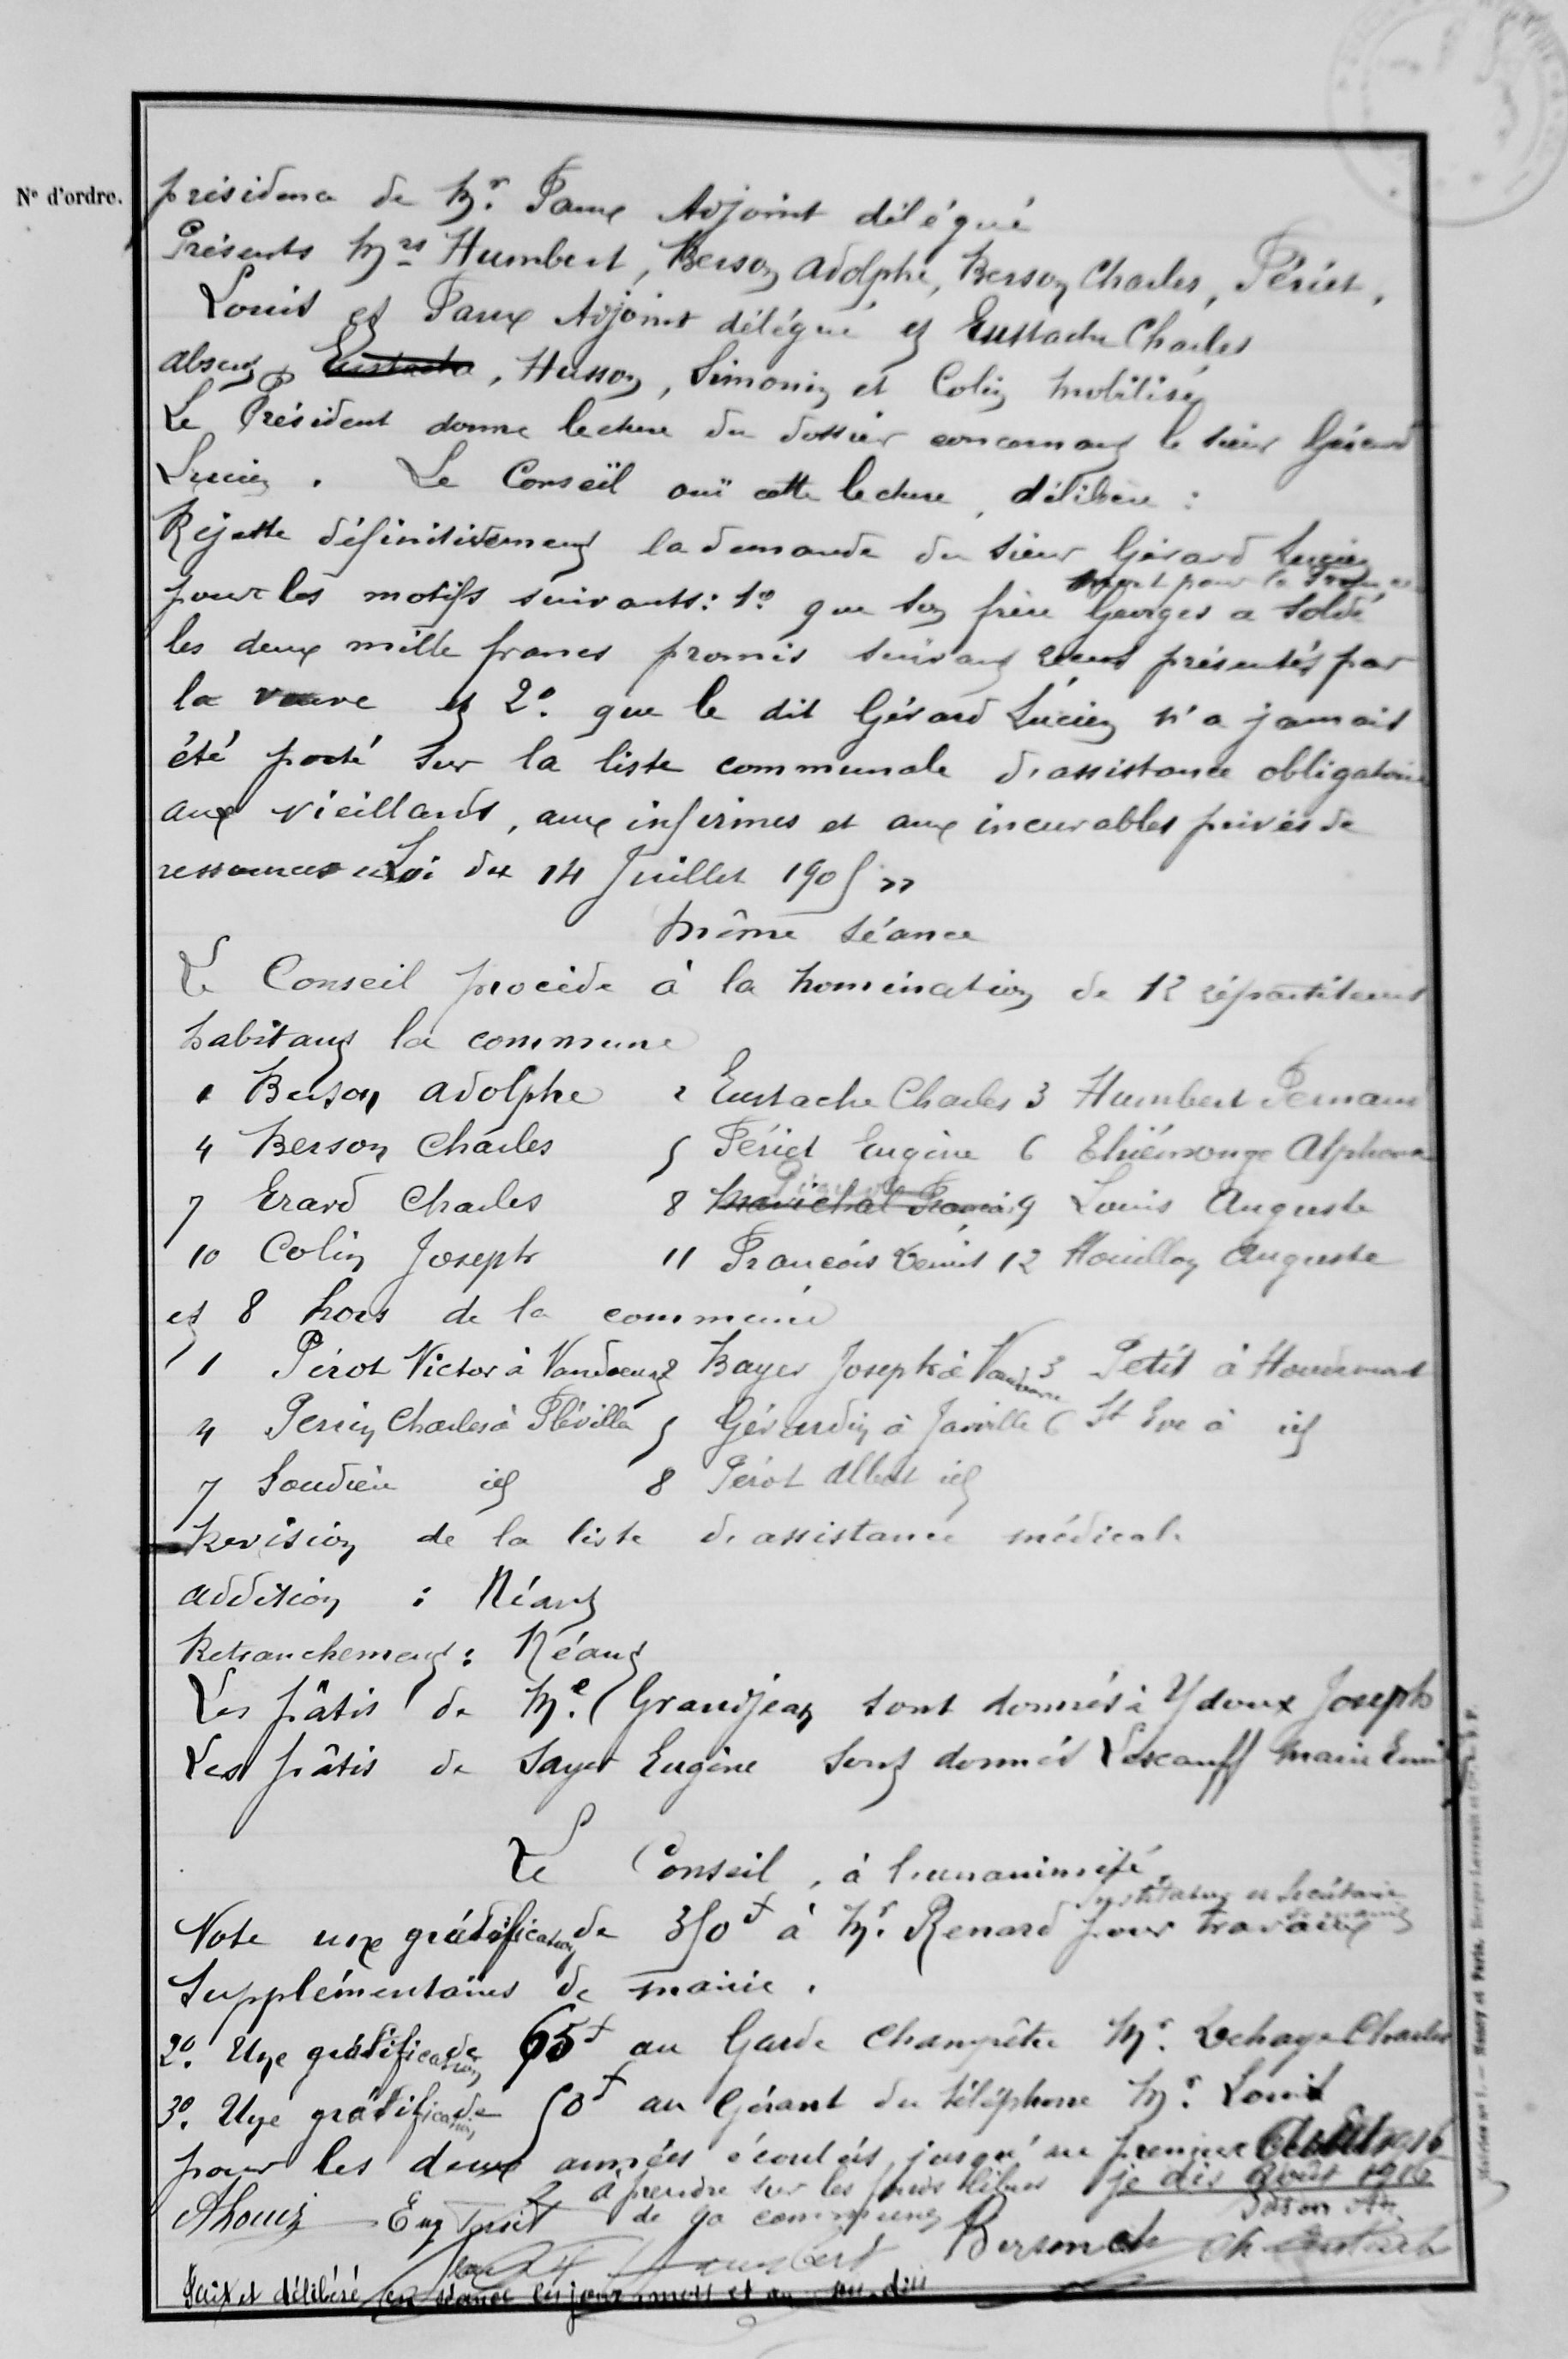 N° d'ordre.
présidence de Mr. Faux Adjoint délégué
Présents Mrs Humbert, Berson Adolphe, Berson Charles, Périet,
Louis et Faux Adjoint délégué et Eustache Charles
absents Eustache, Husson, Simonin et Colin mobilisés
Le Président donne lecture du dossier concernant le sieur Gérard
Lucien. Le Conseil ouï cette lecture, délibère :
Rejette définitivement la demande du sieur Gérard Lucien
mort pour la France
pour les motifs suivants : 1° que son frère Georges a soldé
les deux mille francs promis suivant recus présentés par
la veuve et 2° que le dit Gérard Lucien n'a jamais
été porté sur la liste communale d'assistance obligatoire
aux vieillards, aux infirmes et aux incurables privés de
ressources "Loi du 14 Juillet 1905"
même séance
Le Conseil procède à la nomination de 12 répartiteurs
habitant la commune
1 Berson Adolphe 2 Eustache Charles 3 Humbert Fernand
4 Berson Charles 5 Périet Eugène 6 Thiémonge Alphonse
7 Erard Charles 8 Maréchal François 9 Louis Auguste
10 Colin Joseph 11 François Denis 12 Houillon Auguste
et 8 hors de la commune
1 Pérot Victor à Vandoeuvre 2 Bayer Joseph à Vandoeuvre 3 Petit à Houdemont
4 Perrin Charles à Fléville 5 Gérardin à Jarville 6 St Eve à id
7 Soudieu id 8 Pérot Albert id
Revision de la liste d'assistance médicale
addition : Néant
Retranchement : Néant
Les pâtis de Me. Grandjean sont donnés à Ydoux Joseph
Les pâtis de Sayer Eugène sont donnés Lescauff Marie
Le Conseil, à l'unanimité
Instituteur et Secrétaire
de mairie
Vote une gratification de 350f à Mr. Renard pour travaux
supplémentaires de mairie.
2° Une gratification de 65f au Garde Champêtre Mr. Dehaye Charles
3° Une gratification de 50f au Gérant du téléphone Mr. Louis
pour les deux années écoulées jusqu'au premier
à prendre sur les fonds libres je dis Août 1916
de la commune
A Louis Eug Périet Berson ch
Humbert Ch Eustache
Fait et délibéré en séance les jour, mois et an sus-dits